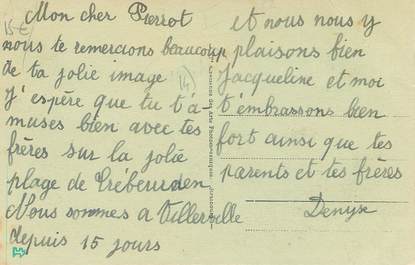 Mon cher Pierrot
nous te remercions beaucoup
de ta jolie image
J'espère que tu t'a-
muses bien avec tes
frères sur la jolie
plage de Trébeurden
Nous sommes a Villerville
depuis 15 jours
et nous nous y
plaisons bien
Jacqueline et moi
t'embrassons bien
fort ainsi que tes
parents et tes frères
Denyse
15 €
(14)